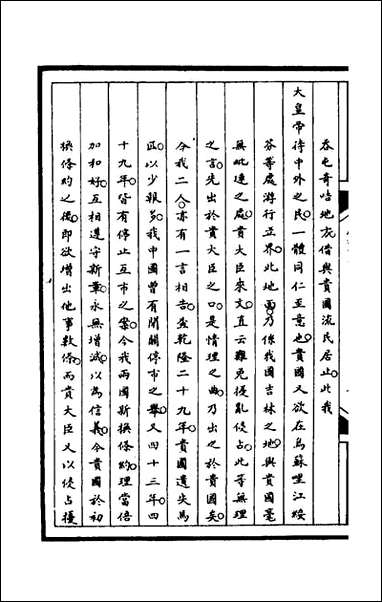 吞屯奇喀地方借與貴國流民居止此我
大皇帝待中外之民一體同仁至意也貴國又欲在烏蘇哩江綏
芬等處游行立界此地面乃係我國吉林之地與貴國毫
無毗連之處貴大臣來文直云難免侵亂侵占此等無理
之言先出於貴大臣之口是情理之曲乃出之於貴國矣
今我二人亦有一言相告查乾隆二十九年貴國遺失馬
匹以少報多我中國曾有閉關停市之舉又四十三年四
十九年皆有停止互市之案今我兩國新換條約理當倍
加和好互相遵守斯兼永無增減以為信義今貴國於初
換條約之後即欲增出他事數條而貴大臣又以侵占擾